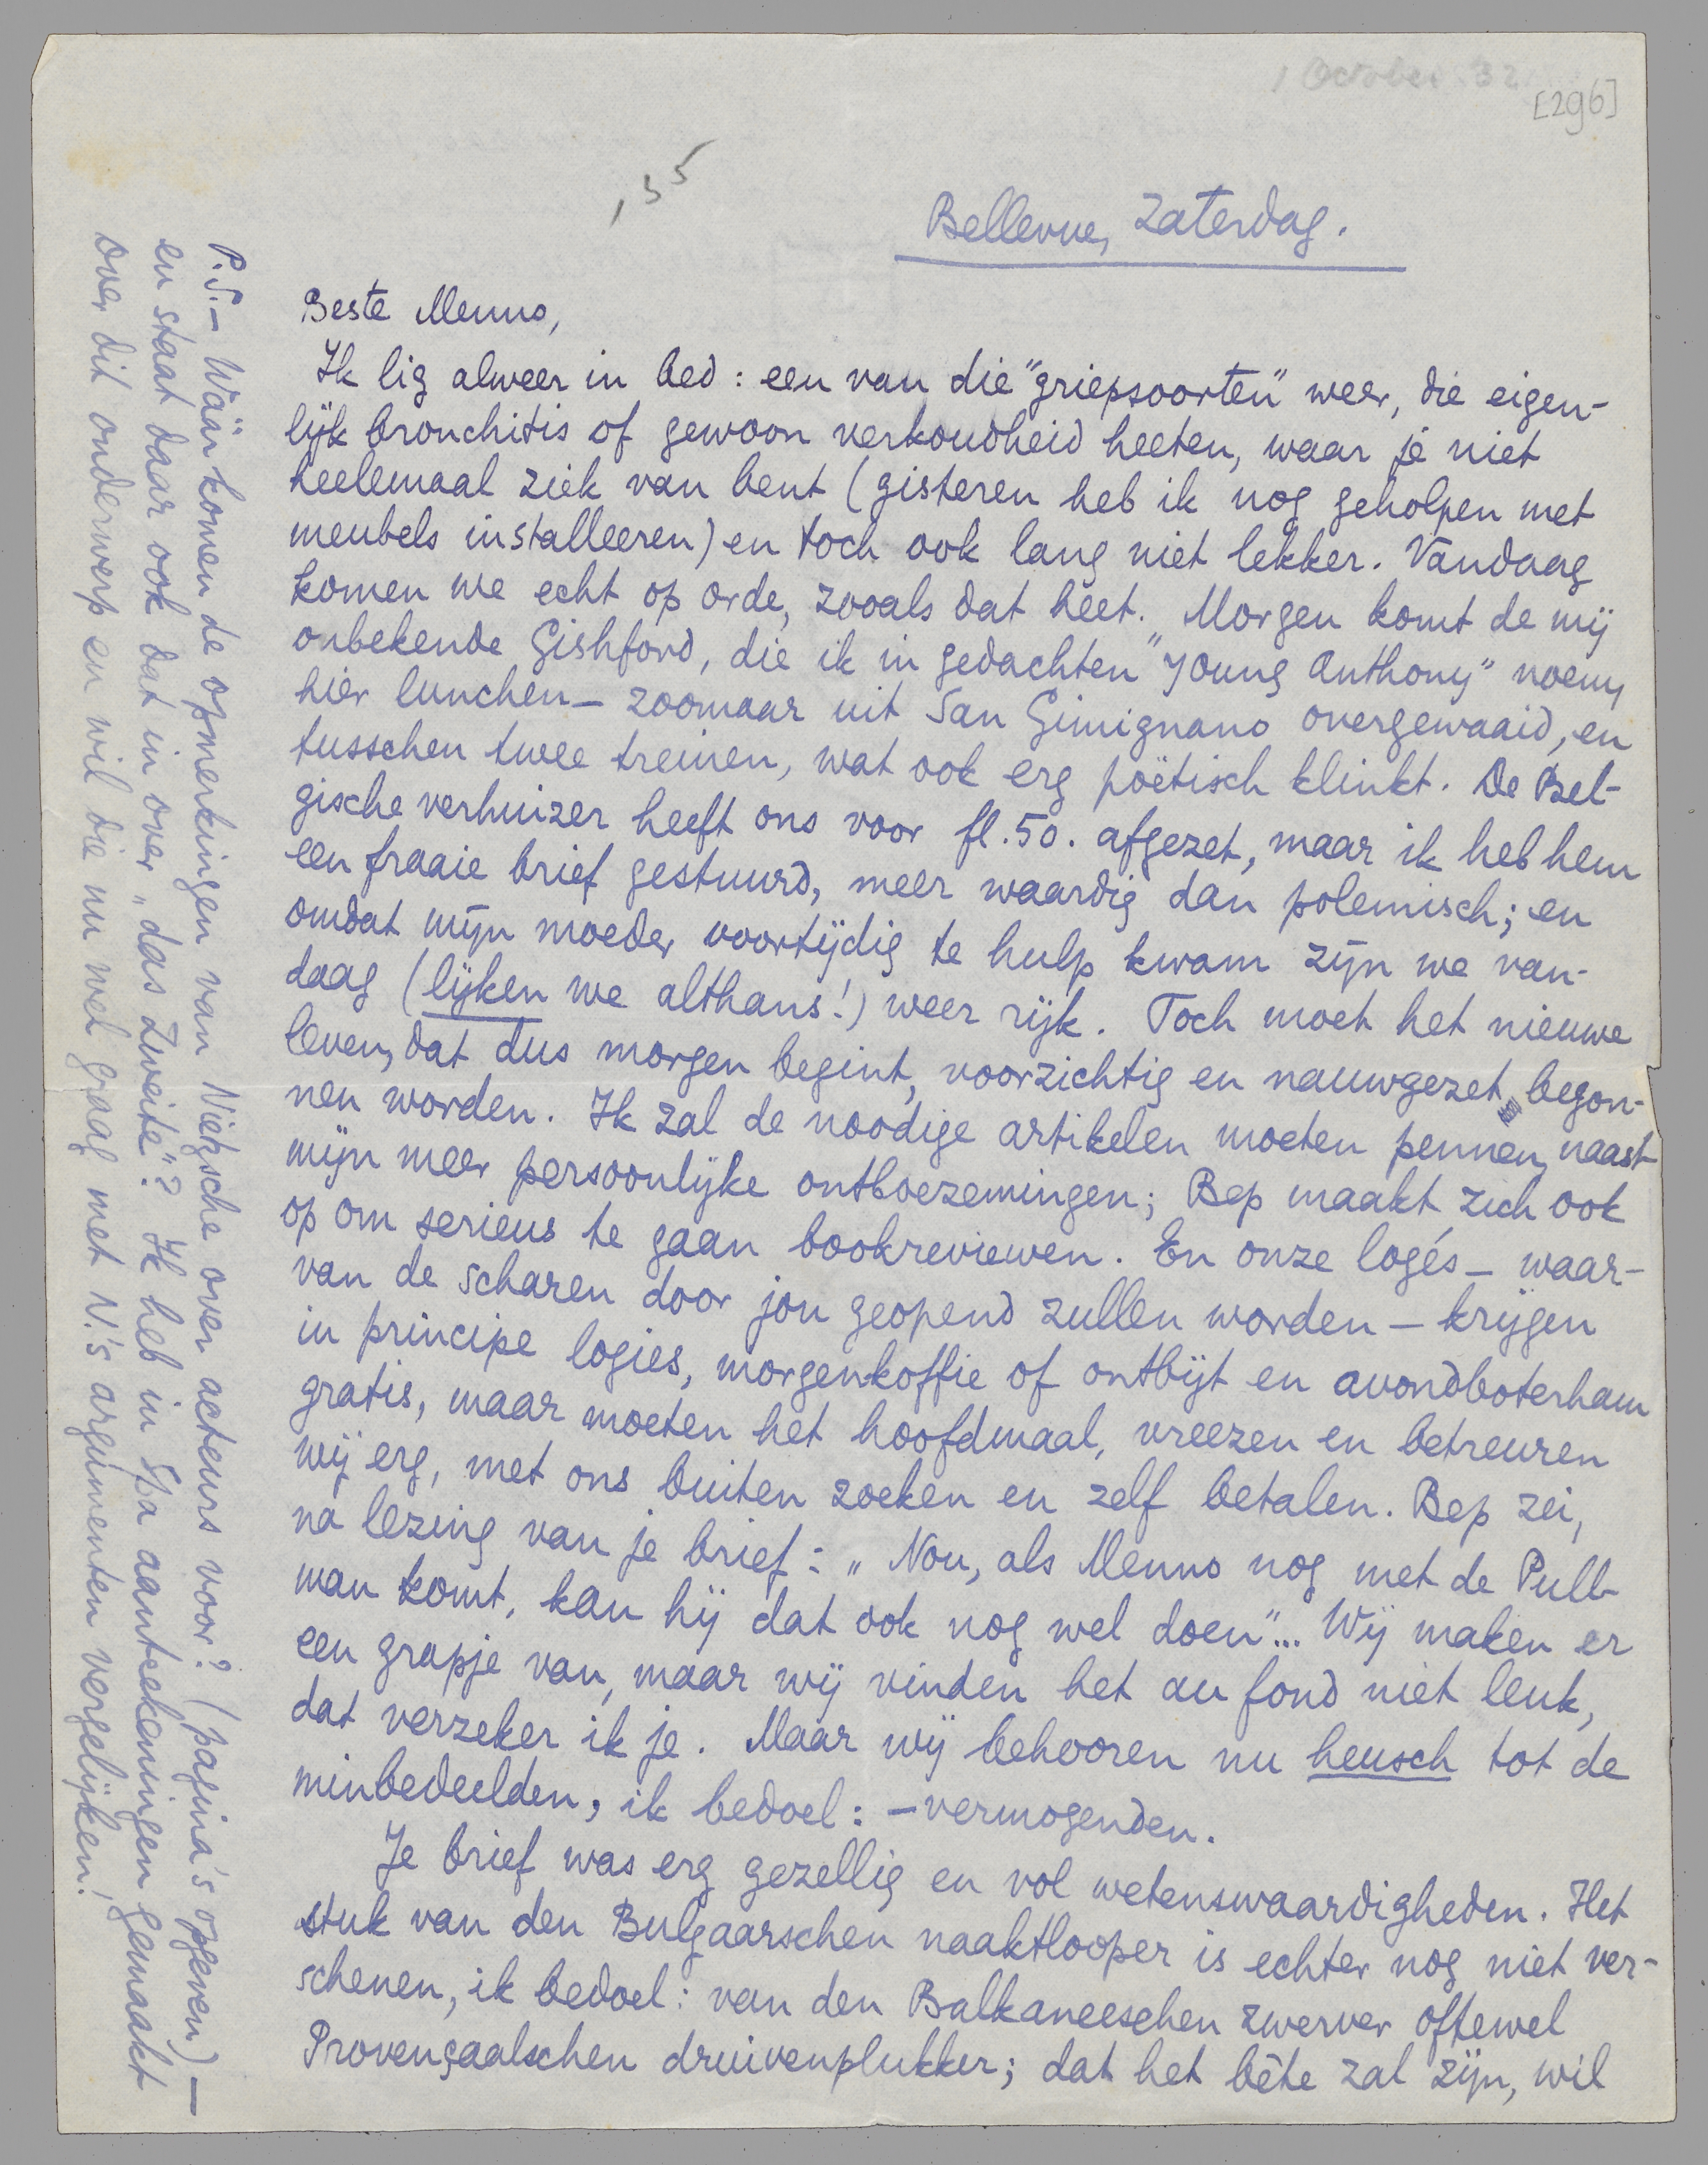 1 October 32
[296]
,35
Bellevue, Zaterdag.
Beste Menno,
Ik lig alweer in bed: een van die "griepsoorten" weer, die eigen-
lijk bronchitis of gewoon verkoudheid heeten, waar je niet
heelemaal ziek van bent (gisteren heb ik nog geholpen met
meubels installeeren) en toch ook lang niet lekker. Vandaag
komen we echt op orde, zooals dat heet. Morgen komt de mij
onbekende Gishford, die ik in gedachten "Young Anthony" noem,
hier lunchen – zoomaar uit San Gimignano overgewaaid, en
tusschen twee treinen, wat ook erg poëtisch klinkt. De Bel-
gische verhuizer heeft ons voor fl. 50. afgezet, maar ik heb hem
een fraaie brief gestuurd, meer waardig dan polemisch; en
omdat mijn moeder voortijdig te hulp kwam zijn we van-
daag (lijken we althans!) weer rijk. Toch moet het nieuwe
leven, dat dus morgen begint, voorzichtig en nauwgezet begon-
nen worden. Ik zal de noodige artikelen moeten pennen, naast
mijn meer persoonlijke ontboezemingen; Bep maakt zich ook
op om serieus te gaan bookreviewen. En onze logés – waar-
van de scharen door jou geopend zullen worden – krijgen
in principe logies, morgenkoffie of ontbijt en avondboterham
gratis, maar moeten het hoofdmaal, vreezen en betreuren
wij erg, met ons buiten zoeken en zelf betalen. Bep zei,
na lezing van je brief: „Nou, als Menno nog met de Pull-
man komt, kan hij dat ook nog wel doen"... Wij maken er
een grapje van, maar wij vinden het au fond niet leuk,
dat verzeker ik je. Maar wij behooren nu heusch tot de
minbedeelden, ik bedoel: –vermogenden.
Je brief was erg gezellig en vol wetenswaardigheden. Het
stuk van den Bulgaarschen naaktlooper is echter nog niet ver-
schenen, ik bedoel: van den Balkaneeschen zwerver oftewel
Provençaalschen druivenplukker; dat het bête zal zijn, wil
P.S. – Wáár komen de opmerkingen van Nietzsche over acteurs voor? (pagina's opgeven) –
en staat daar ook dat in over „das Zweite"? Ik heb in Spa aanteekeningen gemaakt
over dit onderwerp en wil die nu wel graag met N.'s argumenten vergelijken!